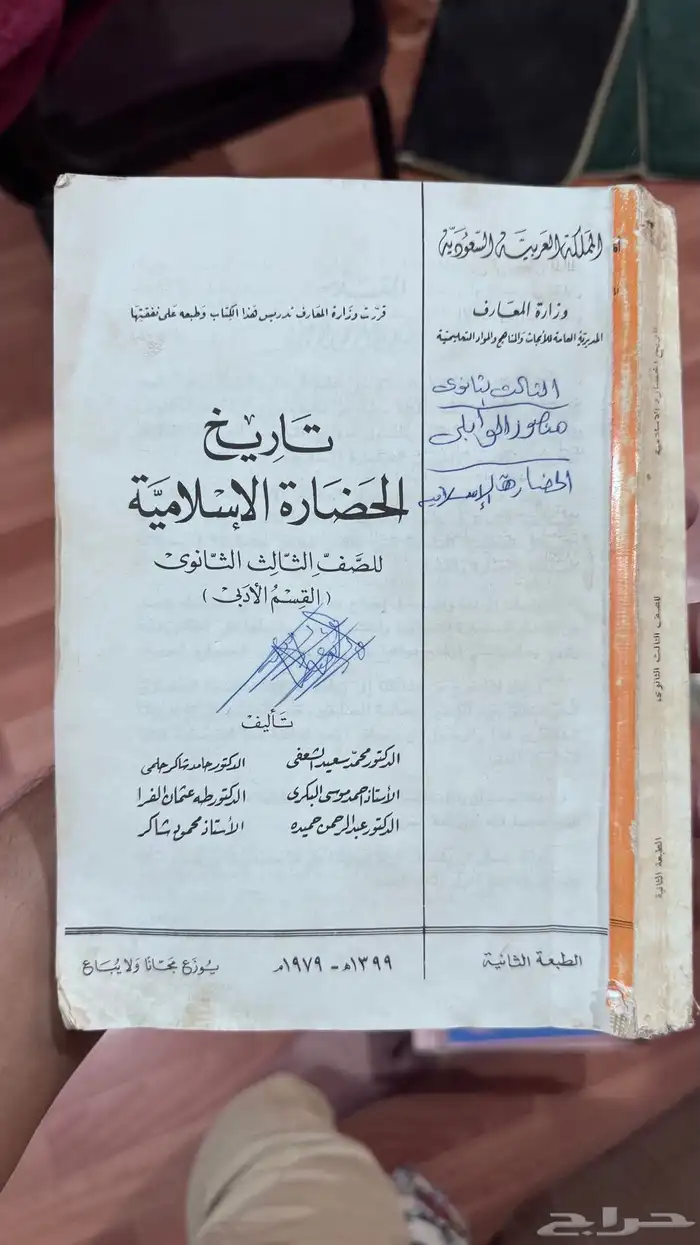 المملكة العربية السعودية
وزارة المعارف
المديرية العامة للأبحاث والمناهج والمواد التعليمية
الثالث ثانوى
منصور الوابلي
الحضارة الإسلامية
قررت وزارة المعارف تدريس هذا الكتاب وطبعه على نفقتها
تاريخ
الحضارة الإسلامية
للصف الثالث الثانوى
(القسم الأدبى)
تأليف
الدكتور محمد سعيد الشعفى الدكتور حامد شاكر حلمى
الأستاذ احمد موسى البكرى الدكتور طه عثمان الفرا
الدكتور عبد الرحمن حميده الأستاذ محمود شاكر
الطبعة الثانية
١٣٩٩هـ - ١٩٧٩م
يوزع مجانا ولا يباع
تاريخ الحضارة الإسلامية
للصف الثالث الثانوى
الطبعة الثانية
حراج